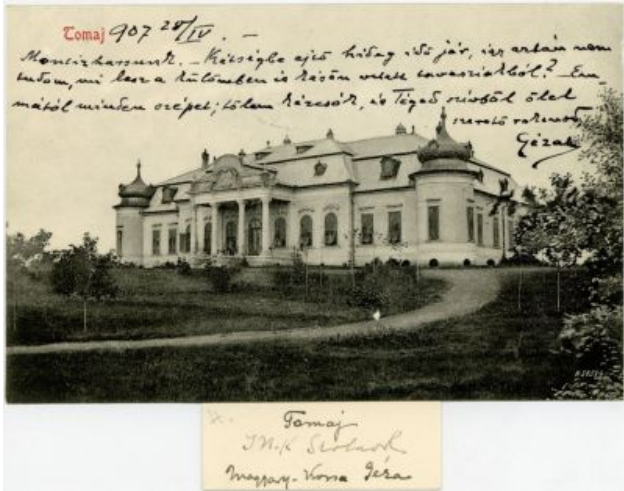 Tomaj 907 28/IV. –
– Kétségbe ejtő hideg idő jár, igy aztán nem
tudom, mi lesz a különben is későn vetett tavasziakból? – Em-
mától minden szépet; tőlem kézcsók, és Téged szívből ölel
szerető
Géza
Tomaj
Magyary-Kossa Géza